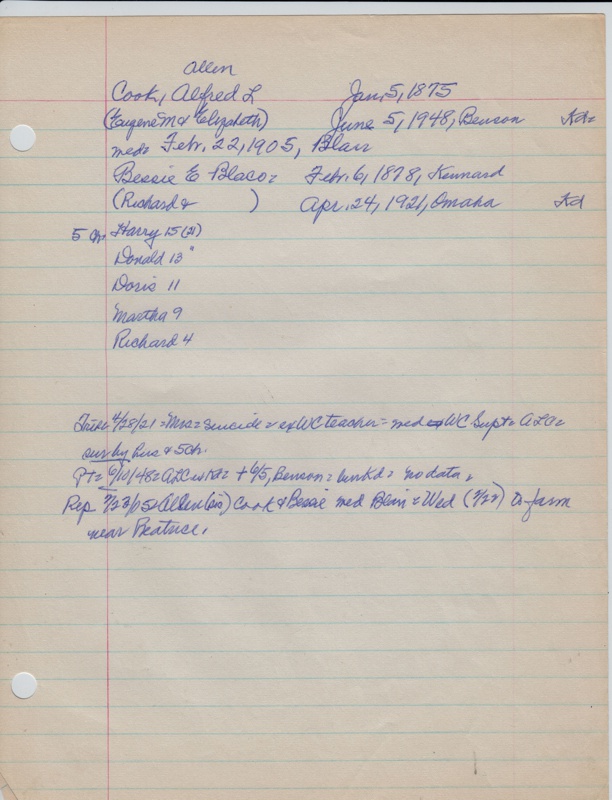 Allen
Cook, Alfred L Jan, 5, 1875
(Eugene M & Elizabeth) June 5, 1948, Benson Kd=
med= Febr. 22, 1905, Blair
Bessie E Blaco= Febr. 6, 1878, Kennard
(Richard & ) Apr. 24, 1921, Omaha Kd
5 ch Harry 15 (21)
Donald 13 "
Doris 11
Martha 9
Richard 4
Trib= 4/28/21 = Mrs = suicide = ex WC teacher = med ex WC Supt = ALC =
sur by hus & 5 ch.
PT= 6/10/48 = ALC = + 6/5, Benson = burKd = no data,
Rep 2/23/05 = Allen (sic) Cook & Bessie med Blair = Wed (2/22) to farm
near Beatrice,